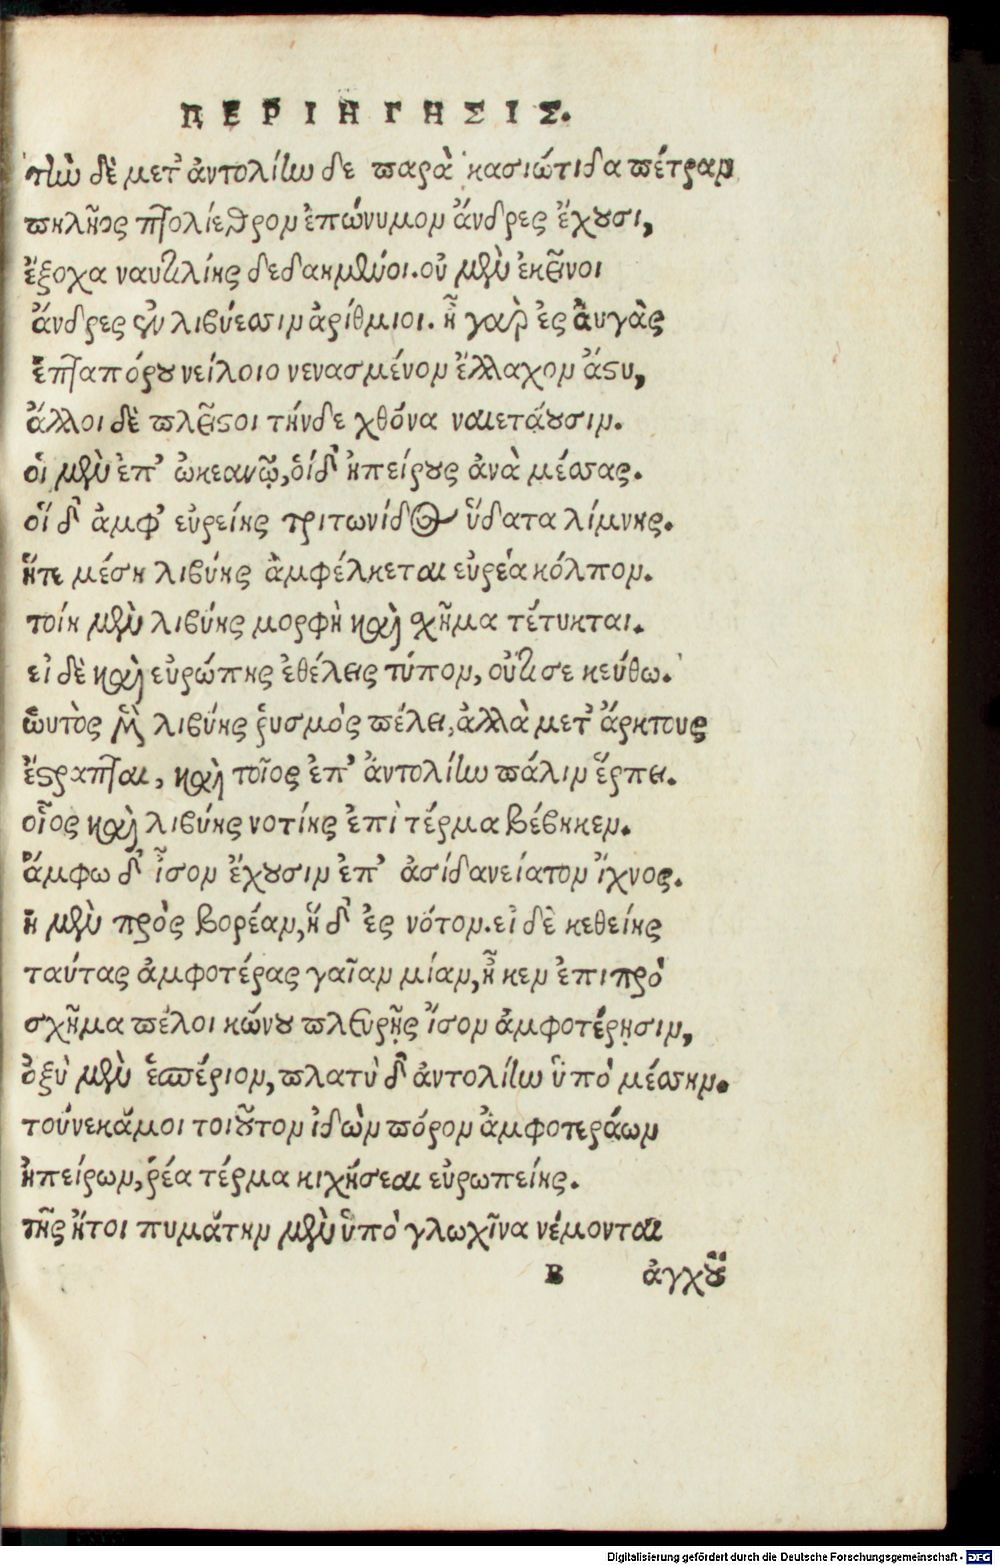 ΠΕΡΙΗΓΗΣΙΣ.
τὴν δὲ μετ' ἀντολίην δε παρὰ κασιώτιδα πέτραν
πηλῆος πτολίεθρον ἐπώνυμον ἄνδρες ἔχουσι,
ἔξοχα ναυτιλίης δεδαημένοι. οὐ μὲν ἐκεῖνοι
ἄνδρες σὺν λιβύεσσιν ἀρίθμιοι. ἦ γὰρ ἐς ἀυγὰς
ἑπταπόρου νείλοιο νενασμένον ἔλλαχον ἄστυ,
ἄλλοι δὲ πλεῖστοι τήνδε χθόνα ναιετάουσιν.
οἱ μὲν ἐπ' ὠκεανῷ, οἱ δ' ἠπείρους ἀνὰ μέσσας.
οἵ δ' ἀμφ' εὐρείης τριτωνίδος ὕδατα λίμνης.
ἥτε μέση λιβύης ἀμφέλκεται εὐρέα κόλπον.
τοίη μὲν λιβύης μορφὴ καὶ σχῆμα τέτυκται.
εἰ δὲ καὶ εὐρώπης ἐθέλεις τύπον, οὔτι σε κεύθω.
ὡυτὸς μὲν λιβύης ῥυσμὸς πέλει, ἀλλὰ μετ' ἄρκτους
ἔστραπται, καὶ τοῖος ἐπ' ἀντολίην πάλιν ἕρπει.
οἷος καὶ λιβύης νοτίης ἐπὶ τέρμα βέβηκεν.
ἄμφω δ' ἶσον ἔχουσιν ἐπ' ἀσίδα νείατον ἴχνος.
ἡ μὲν πρὸς βορέαν, ἥ δ' ἐς νότον. εἰ δὲ κε θείης
ταύτας ἀμφοτέρας γαῖαν μίαν, ἦ κεν ἐπιπρὸ
σχῆμα πέλοι κώνου πλευρῇς ἴσον ἀμφοτέρῃσιν,
ὀξὺ μὲν ἑσπέριον, πλατὺ δ' ἀντολίην ὑπὸ μέσσην.
τούνεκά μοι τοιοῦτον ἰδὼν πόρον ἀμφοτεράων
ἠπείρων, ῥέα τέρμα κιχήσεαι εὐρωπείης.
τῆς ἤτοι πυμάτην μὲν ὑπὸ γλωχῖνα νέμονται
B ἀγχοῦ
Digitalisierung gefördert durch die Deutsche Forschungsgemeinschaft - DFG